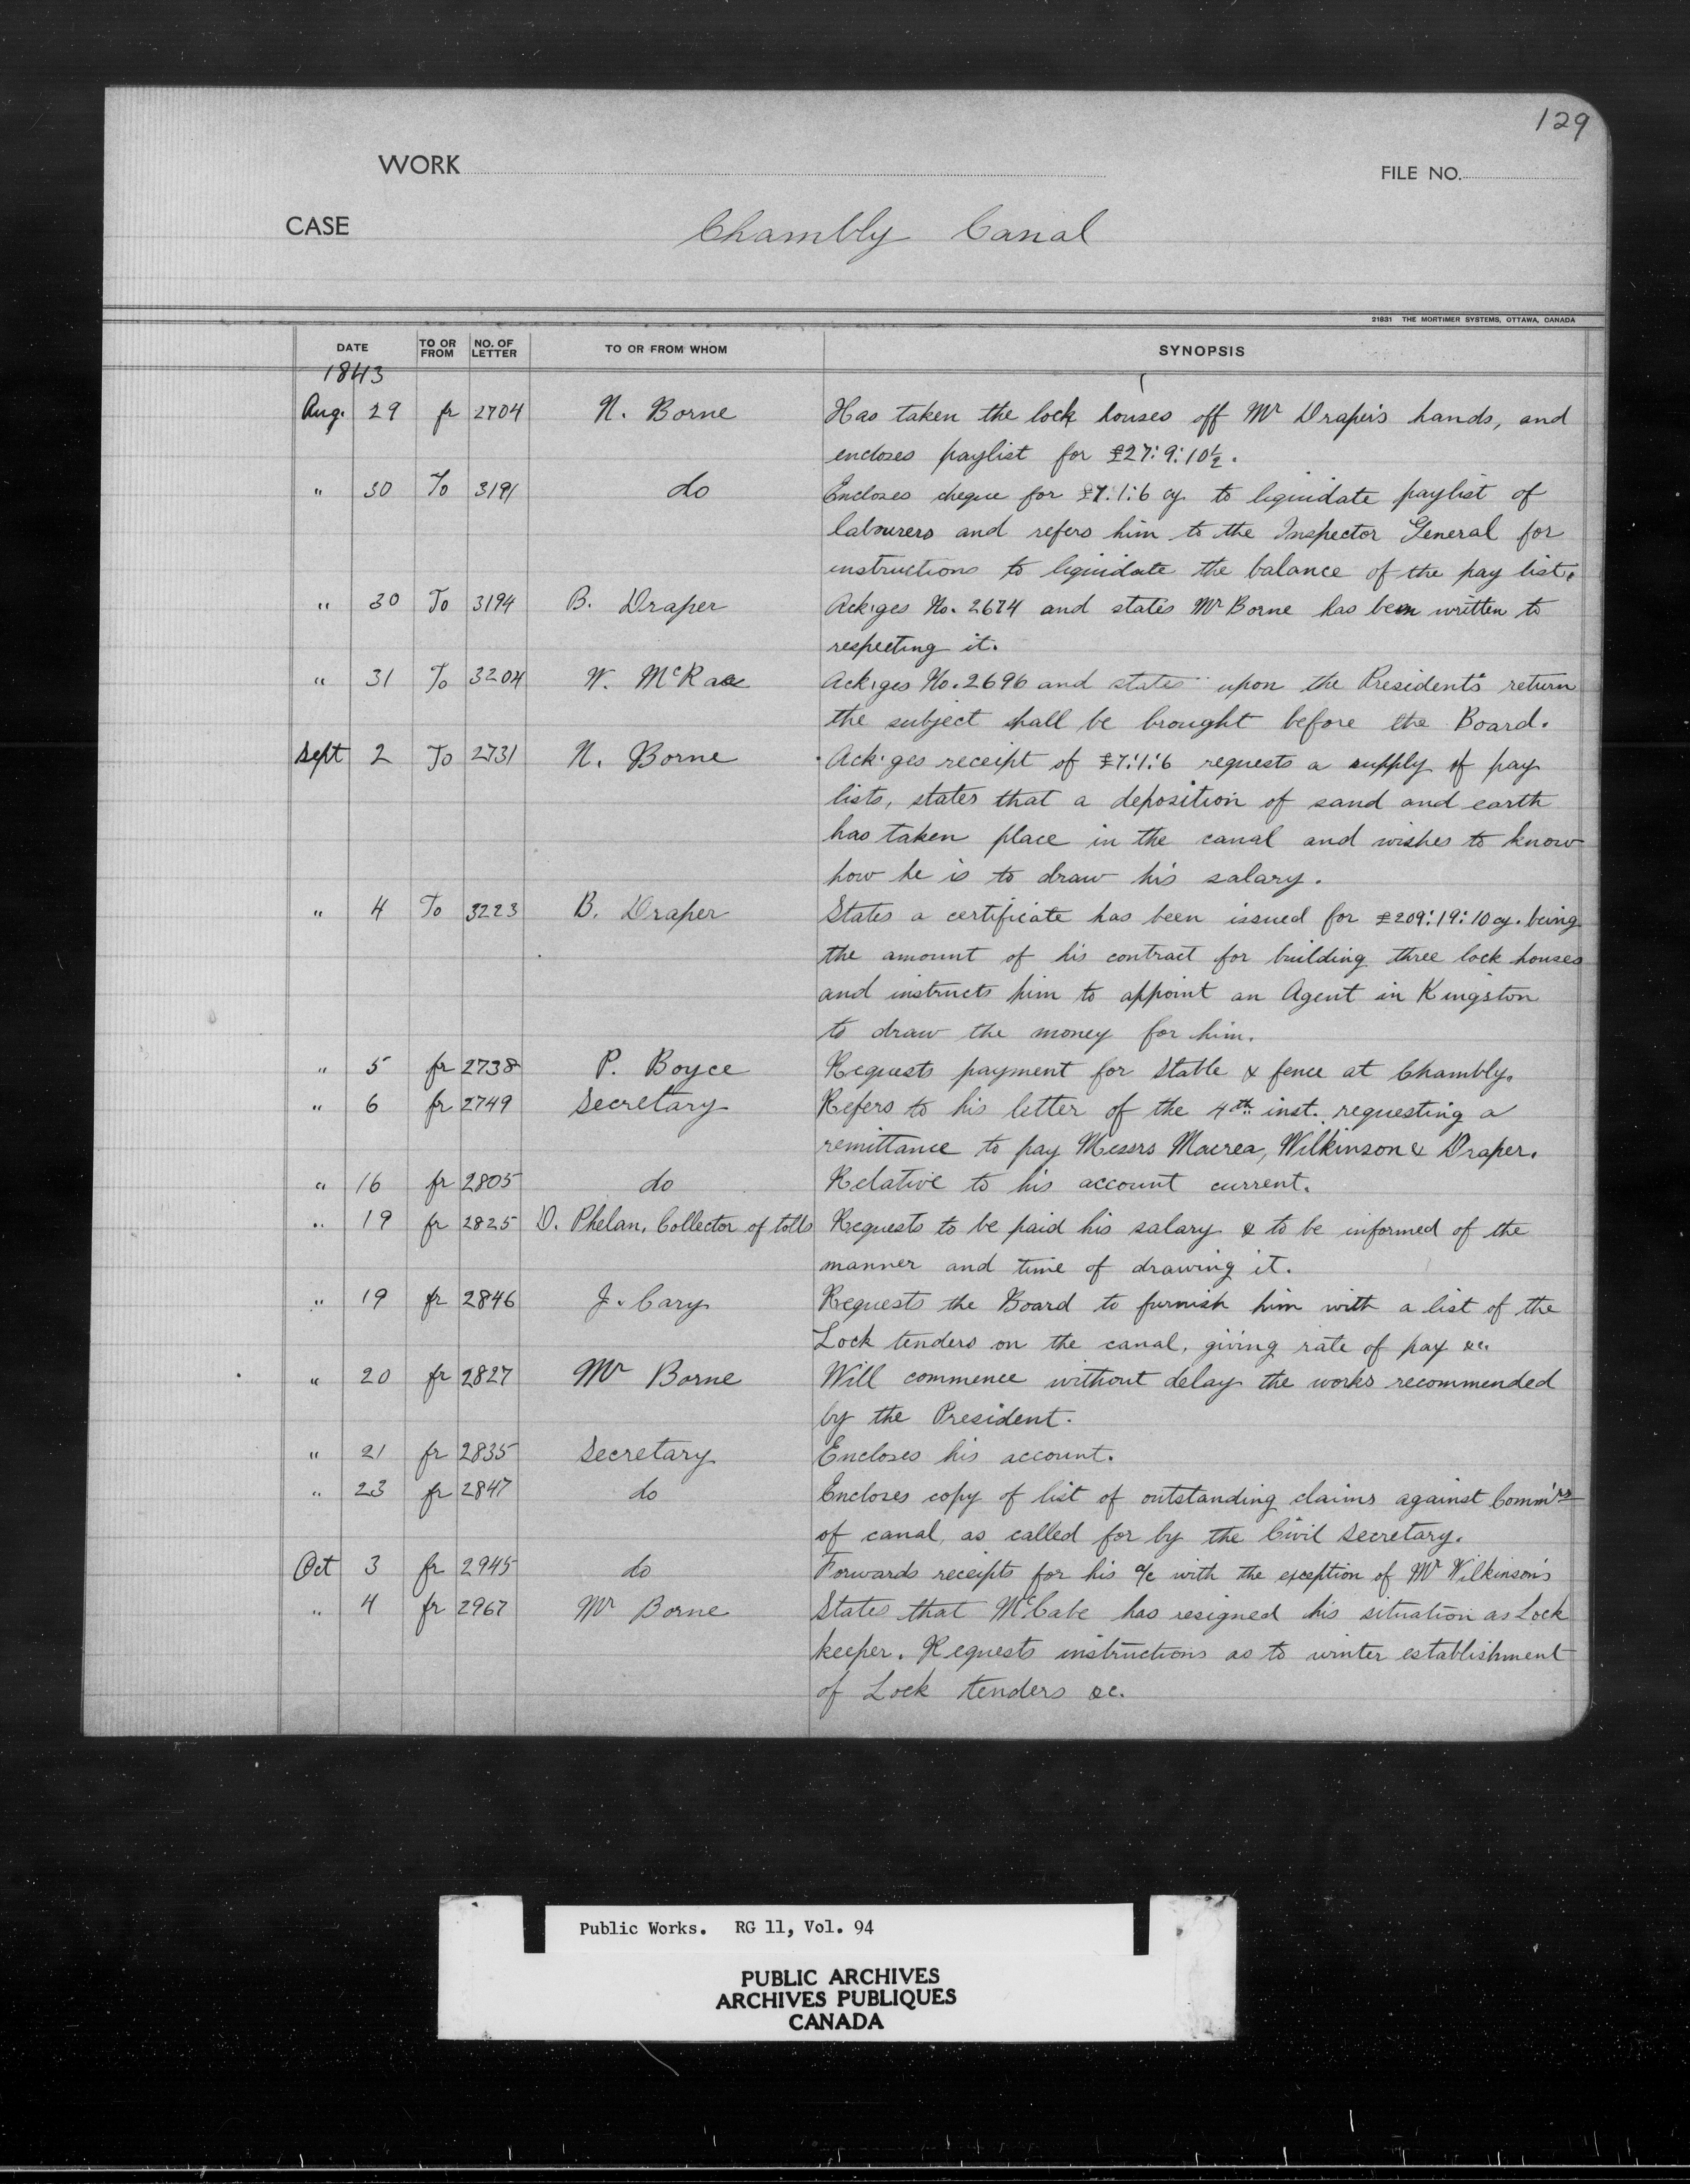 129
WORK
FILE NO.
CASE
Chambly Canal
21831 THE MORTIMER SYSTEMS, OTTAWA, CANADA
DATE TO OR FROM NO. OF LETTER TO OR FROM WHOM SYNOPSIS
1843
Aug. 29 fr 2704 N. Borne Has taken the lock houses off Mr Draper's hands, and
encloses paylist for £27:9:10½.
" 30 To 3191 do Encloses cheque for £7.1:6 cy. to liquidate paylist of
labourers and refers him to the Inspector General for
instructions to liquidate the balance of the pay list.
" 30 To 3194 B. Draper Ack:ges No. 2674 and states Mr Borne has been written to
respecting it.
" 31 To 3204 W. McRae Ack:ges No. 2696 and states upon the President's return
the subject shall be brought before the Board.
Sept 2 To 2731 N. Borne Ack:ges receipt of £7:1:6 requests a supply of pay
lists, states that a deposition of sand and earth
has taken place in the canal and wishes to know
how he is to draw his salary.
" 4 To 3223 B. Draper States a certificate has been issued for £209:19:10 cy. being
the amount of his contract for building three lock houses
and instructs him to appoint an Agent in Kingston
to draw the money for him.
" 5 fr 2738 P. Boyce Requests payment for Stable & fence at Chambly.
" 6 fr 2749 Secretary Refers to his letter of the 4th inst. requesting a
remittance to pay Messrs Macrea, Wilkinson & Draper.
" 16 fr 2805 do Relative to his account current.
" 19 fr 2825 D. Phelan, Collector of tolls Requests to be paid his salary & to be informed of the
manner and time of drawing it.
" 19 fr 2846 J. Cary Requests the Board to furnish him with a list of the
Lock tenders on the canal, giving rate of pay &c.
" 20 fr 2827 Mr Borne Will commence without delay the works recommended
by the President.
" 21 fr 2835 Secretary Encloses his account.
" 23 fr 2847 do Encloses copy of list of outstanding claims against Comm'rs
of canal, as called for by the Civil Secretary.
Oct 3 fr 2945 do Forwards receipts for his a/c with the exception of Mr Wilkinson's
" 4 fr 2967 Mr Borne States that McCabe has resigned his situation as Lock
keeper. Requests instructions as to winter establishment
of Lock tenders &c.
Public Works. RG 11, Vol. 94
PUBLIC ARCHIVES
ARCHIVES PUBLIQUES
CANADA